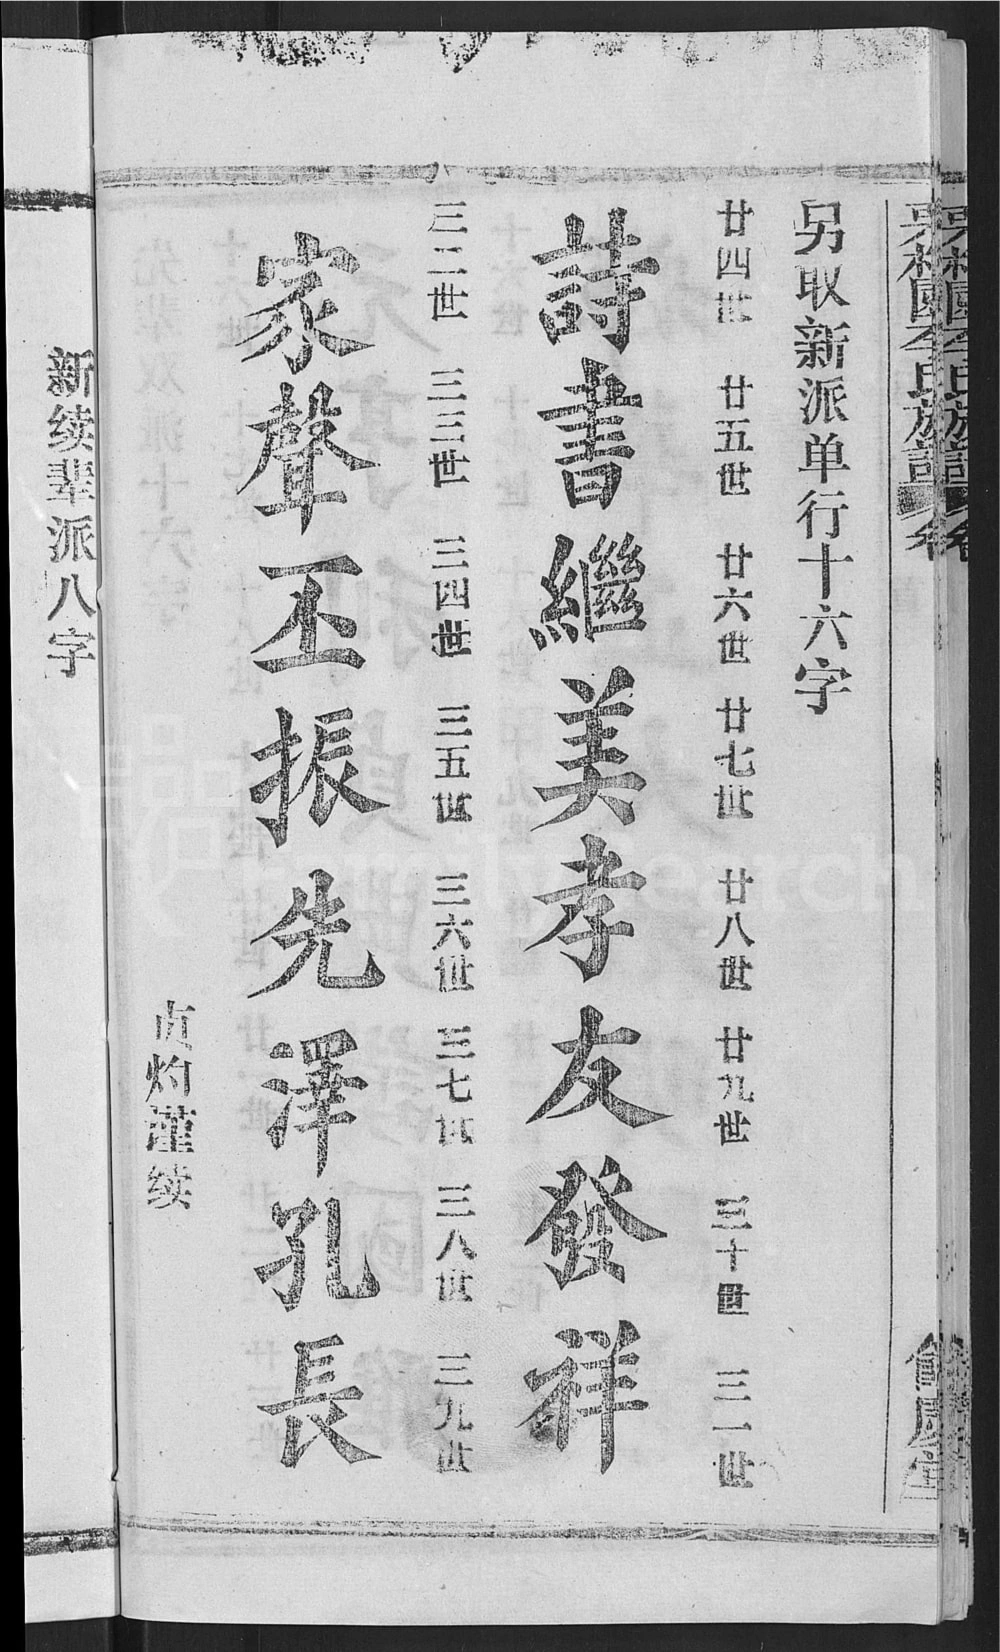 另取新派单行十六字
廿四世 廿五世 廿六世 廿七世 廿八世 廿九世 三十世 三一世
詩書繼美孝友發祥
三二世 三三世 三四世 三五世 三六世 三七世 三八世 三九世
家聲丕振先澤孔長
灼謹续
新续辈派八字